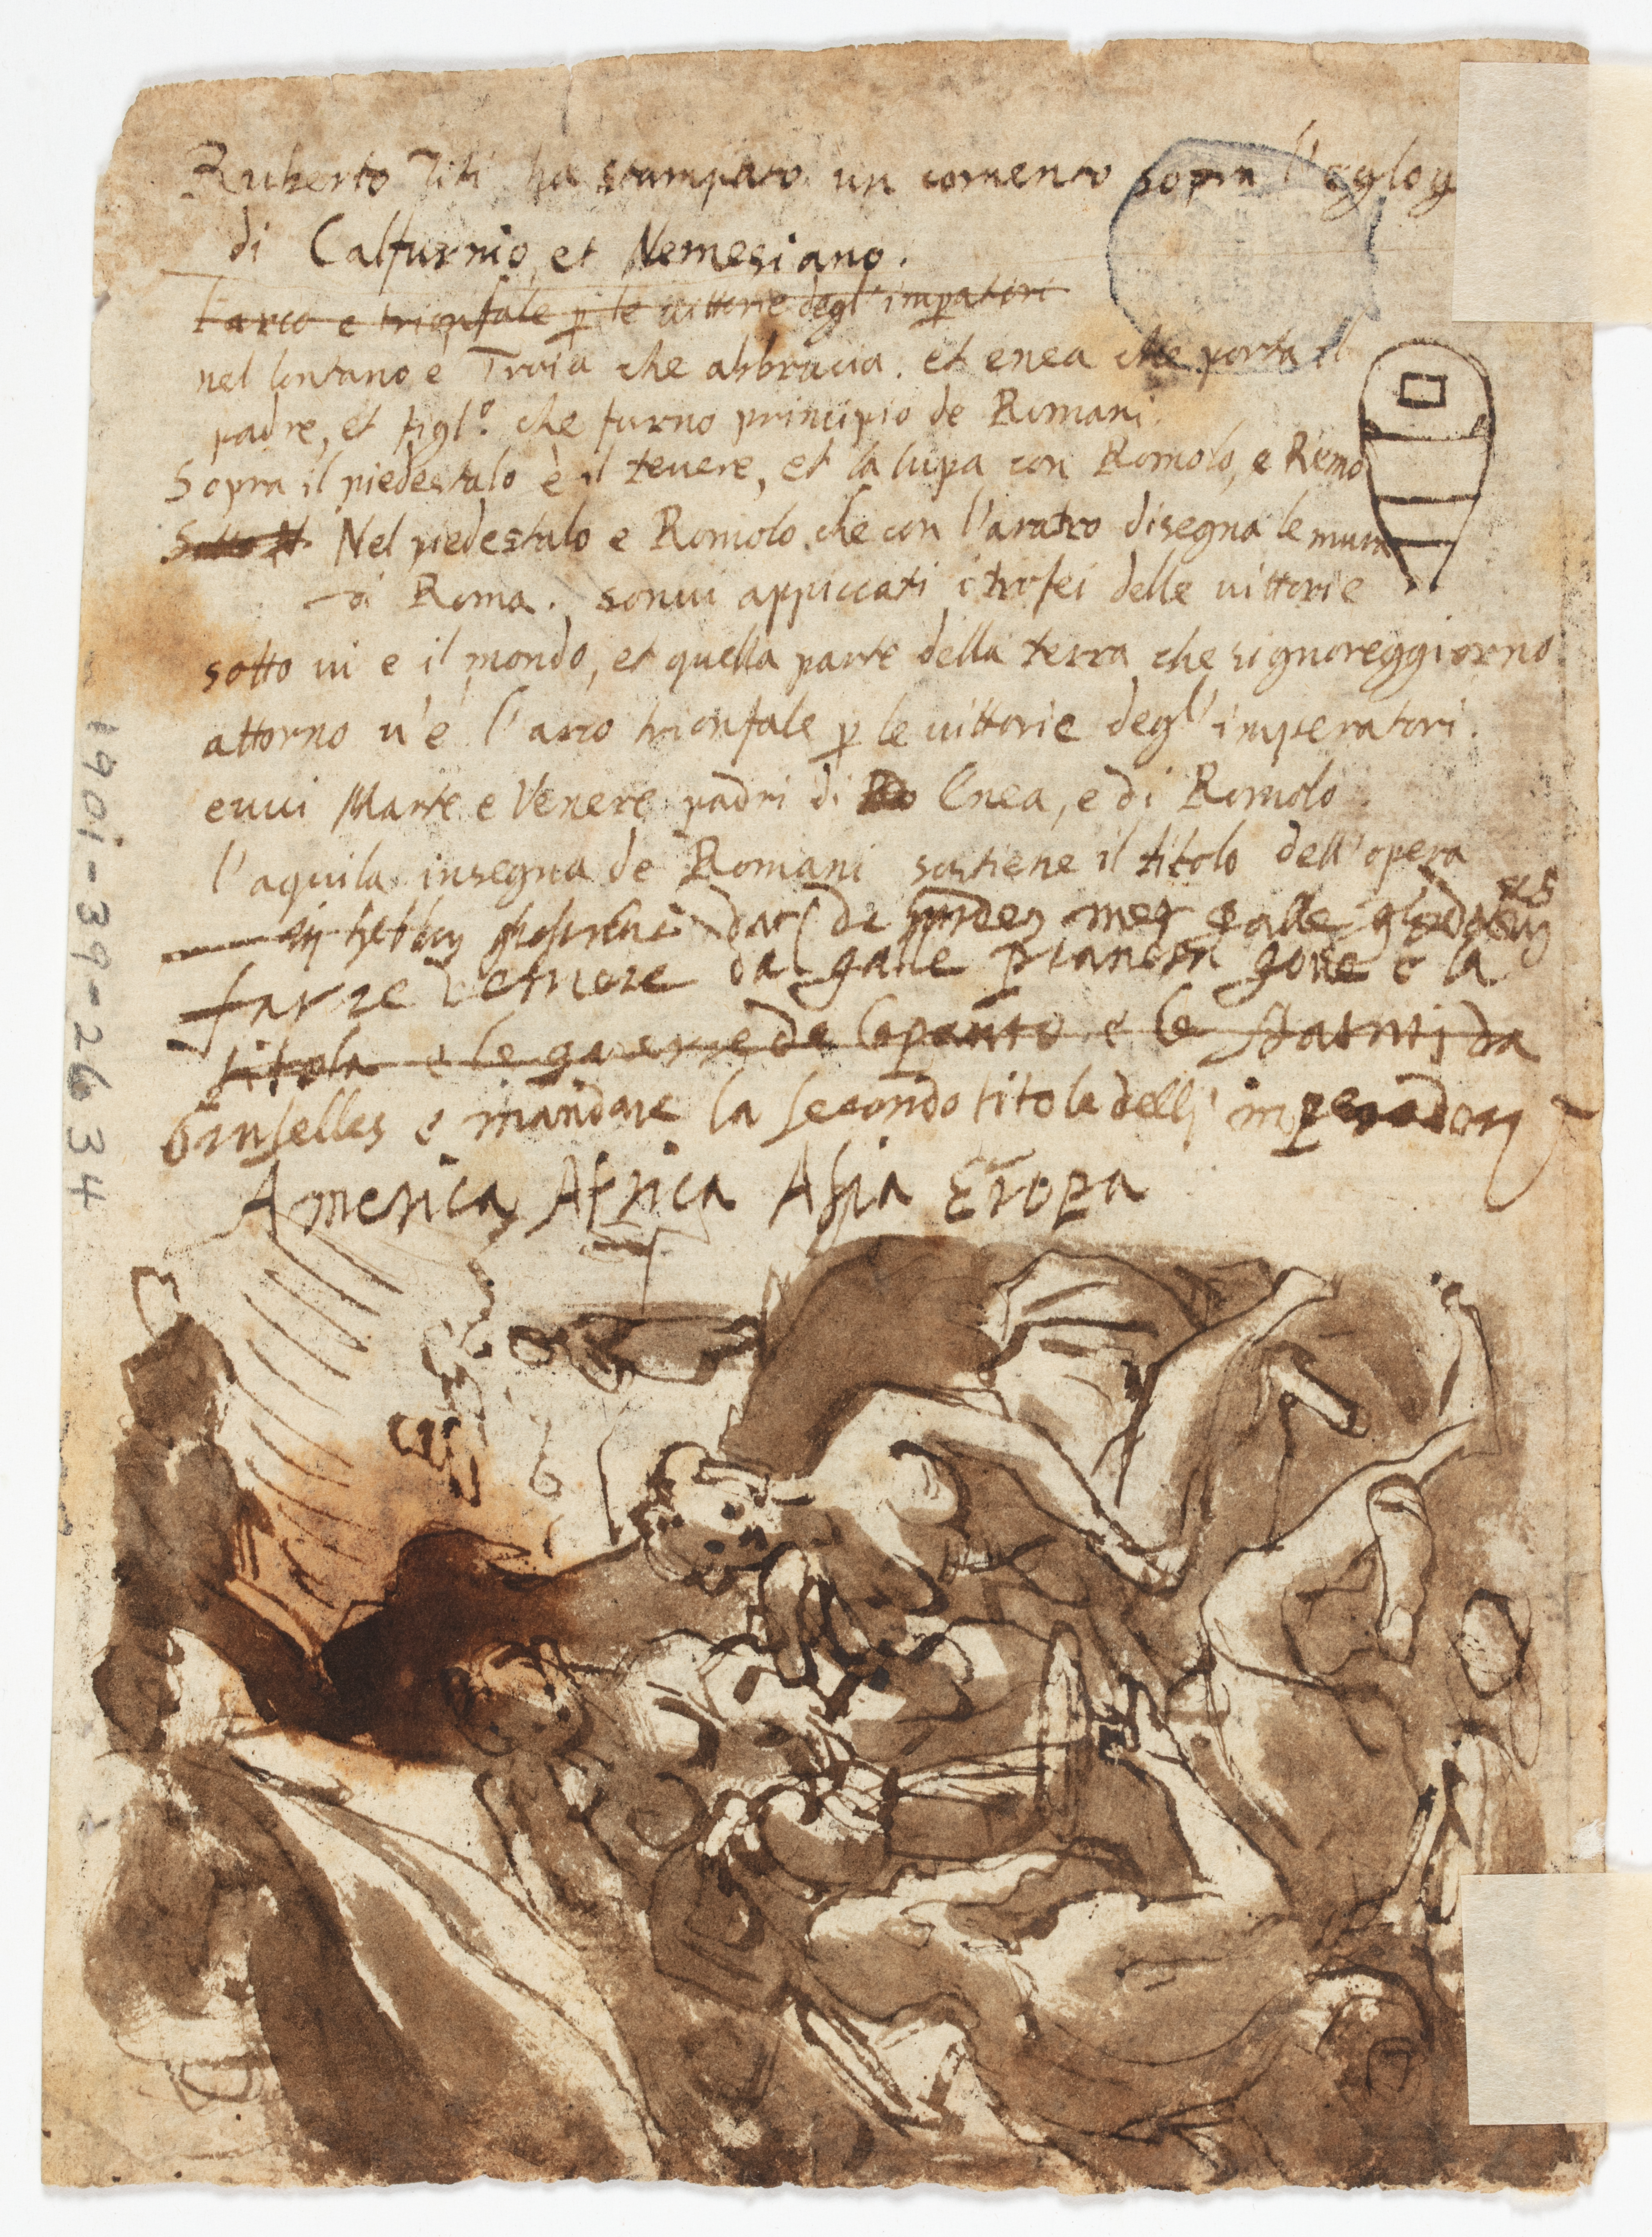 Ruberto Titi ha stampato un comento sopra l'eglog
di Calfurnio, et Nemesiano.
l'arco e trionfale p le vittorie degl' impatori
nel lontano è Troia che abbrucia. et enea che porta il
padre, et figl.º che furno principio de Romani.
Sopra il piedestalo è il tevere, et la lupa con Romolo, e Remo
Sotto Nel piedestalo e Romolo che con l'aratro disegna le mura
di Roma. sonvi appiccati i trofei delle vittorie
sotto vi e il mondo, et quella parte della terra che signoreggiorno
attorno v'è l'arco trionfale p le vittorie degl' imperatori.
euui Marte e Venere padri di Enea, e di Romolo
l'aquila insegna de Romani sostiene il titolo dell'opera
da
farre da e la
titola e le de lepanto e le da
bruselles e mandare la secondo titole delli imperadory
America Africa Asia Eropa
1901-39-2634